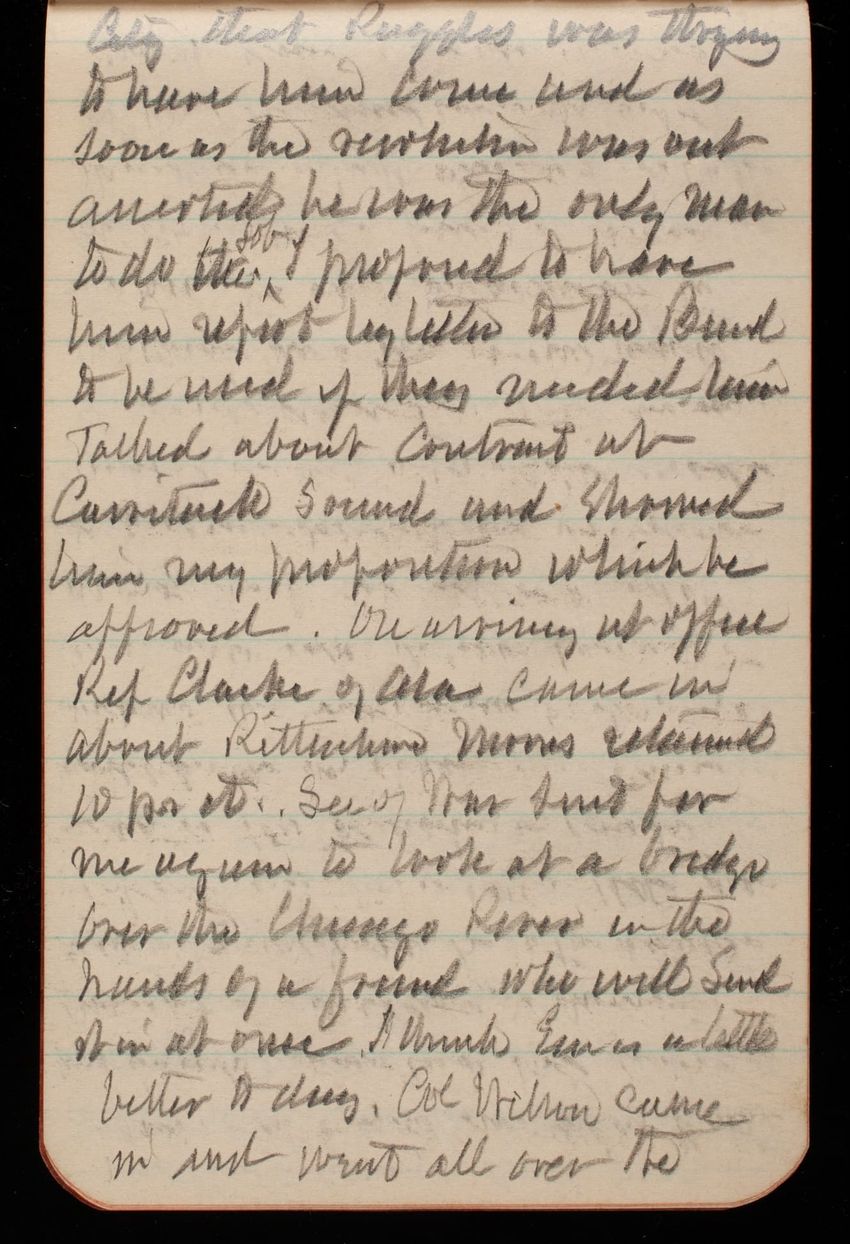 City that Ruggles was trying
to have him come and as
soon as the resolution was out
asserted he was the only man
to do the job I proposed to have
him report by letter to the Board
to be used if they needed him
Talked about contract at
Currituck Sound and showed
him my proposition which he
approved. On arriving at office
Rep Clarke of Ala came in
about Rittenhouse Moores retained
10 per ct. Sec of War sent for
me again to look at a bridge
over the Chicago River in the
hands of a friend who will send
it in at once. I think Em is a little
better to day. Col Wilson came
in and went all over the